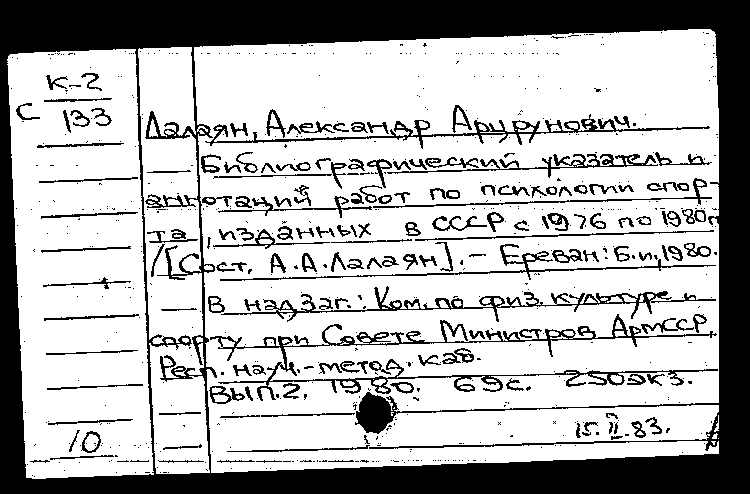 К-2
С 133
Лалаян, Александр Арцрунович.
Библиографический указатель и
аннотаций работ по психологии спор-
та, изданных в СССР с 1976 по 1980г
/[Сост. А.А.Лалаян]. - Ереван: Б.и., 1980.
В надзаг.: Ком. по физ. культуре и
спорту при Совете Министров АрмССР,
Респ. науч.-метод. каб.
Вып.2. 1980. 69с. 250экз.
15.II.83.
10